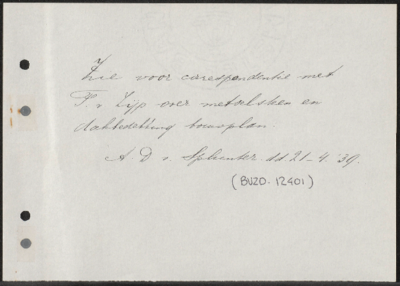 Zie voor corespondentie met
F. v Zijp over metselsteen en
dakbedekking bouwplan
A D v. Splunter. dd 21-4 '39.
(BUZO. 12401)